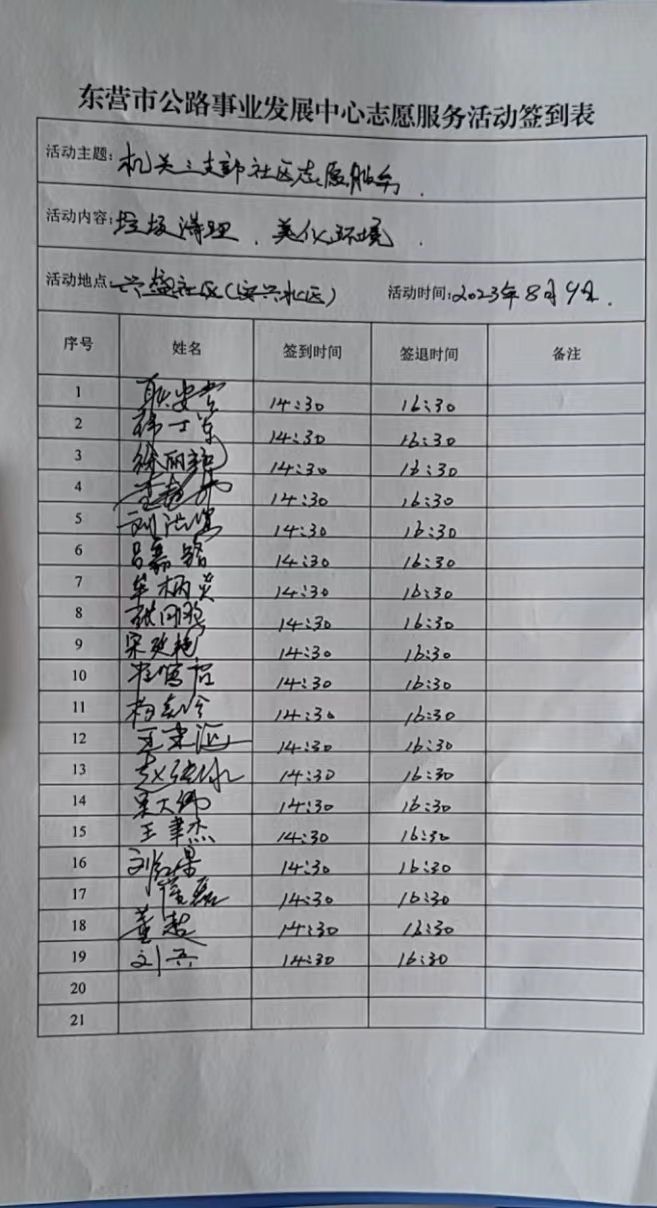 东营市公路事业发展中心志愿服务活动签到表
活动主题：机关三支部社区志愿服务．
活动内容：垃圾清理．美化环境．
活动地点：兴盛社区（安兴北区） 活动时间：2023年8月9日．
序号 姓名 签到时间 签退时间 备注
1 14:30 16:30
2 14:30 16:30
3 徐丽 14:30 16:30
4 14:30 16:30
5 刘洪 14:30 16:30
6 吕嘉 14:30 16:30
7 牟炳英 14:30 16:30
8 张 14:30 16:30
9 宋延艳 14:30 16:30
10 14:30 16:30
11 杨 14:30 16:30
12 王 14:30 16:30
13 赵 14:30 16:30
14 吴大伟 14:30 16:30
15 王聿杰 14:30 16:30
16 刘红果 14:30 16:30
17 崔磊 14:30 16:30
18 董超 14:30 16:30
19 刘 14:30 16:30
20
21